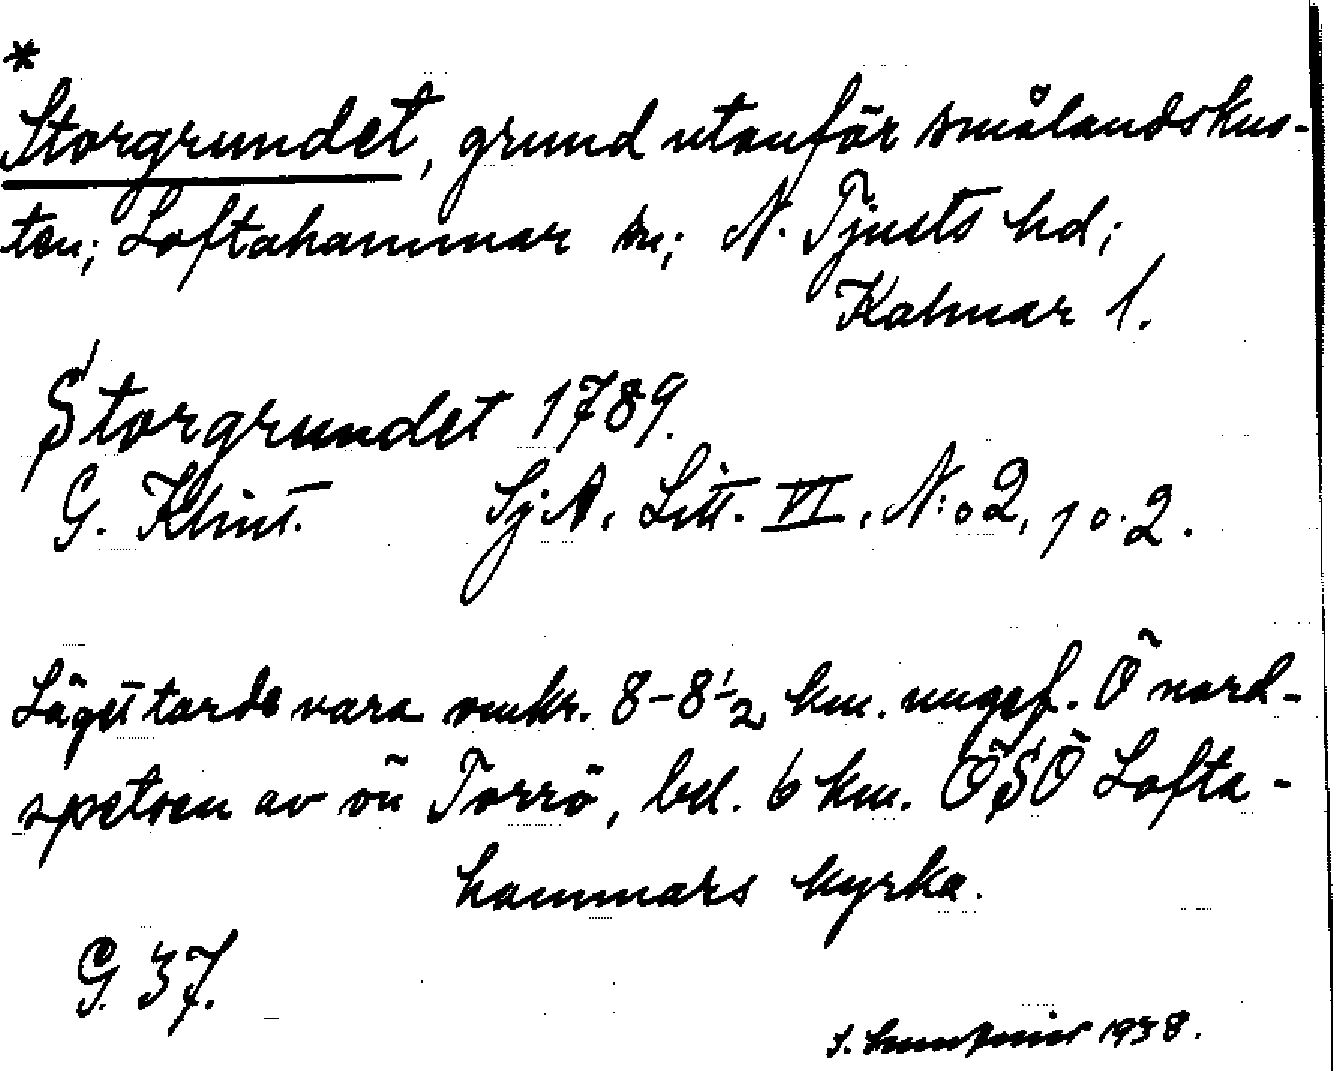 *
Storgrundet, grund utanför smålandskus-
ten; Loftahammar sn; N. Tjusts hd;
Kalmar l.
Storgrundet 1789.
G. Klint. Sj.A. Litt. VI, N:o 2, p. 2.
Läget torde vara omkr. 8-8½ km. ungef. Ö nord-
spetsen av ön Torrö, bel. 6 km. ÖSÖ Lofta-
hammars kyrka.
G. 37.
1938.